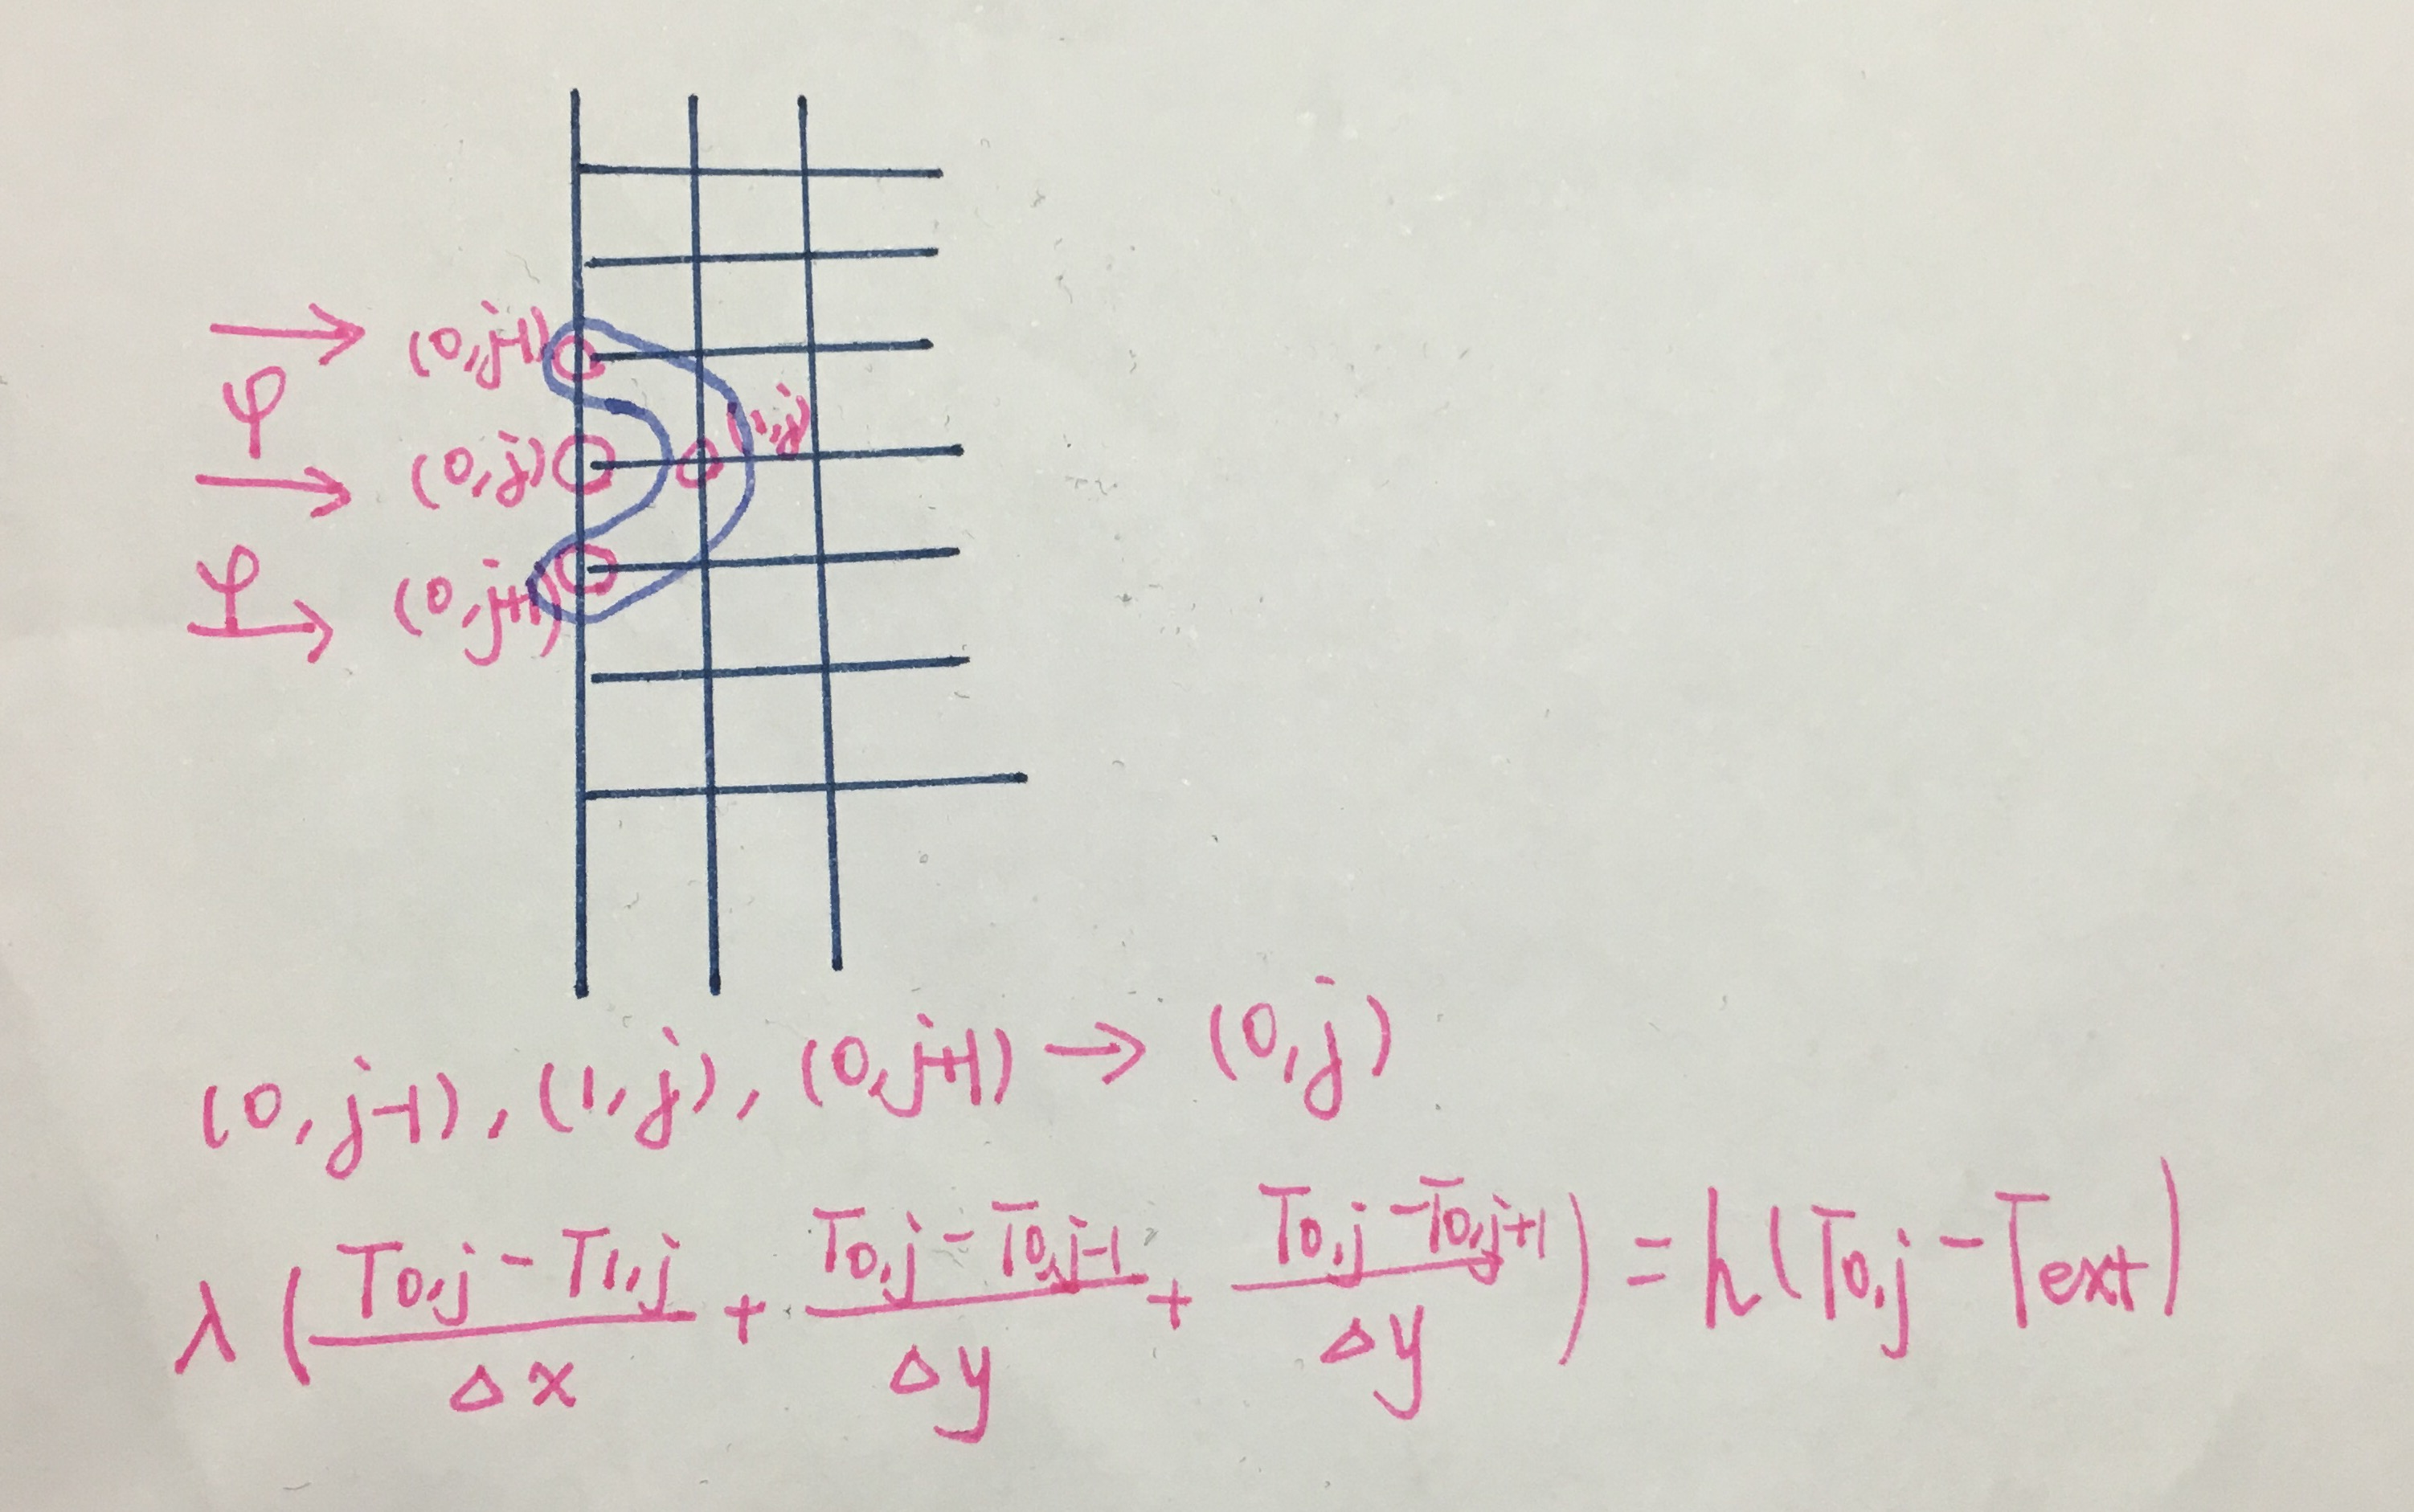 (0,j-1)
φ
(1,j)
(0,j)
φ
(0,j+1)
(0,j-1), (1,j), (0,j+1) → (0,j)
λ ( (T0,j - T1,j)/Δx + (T0,j - T0,j-1)/Δy + (T0,j - T0,j+1)/Δy ) = h(T0,j - Text)